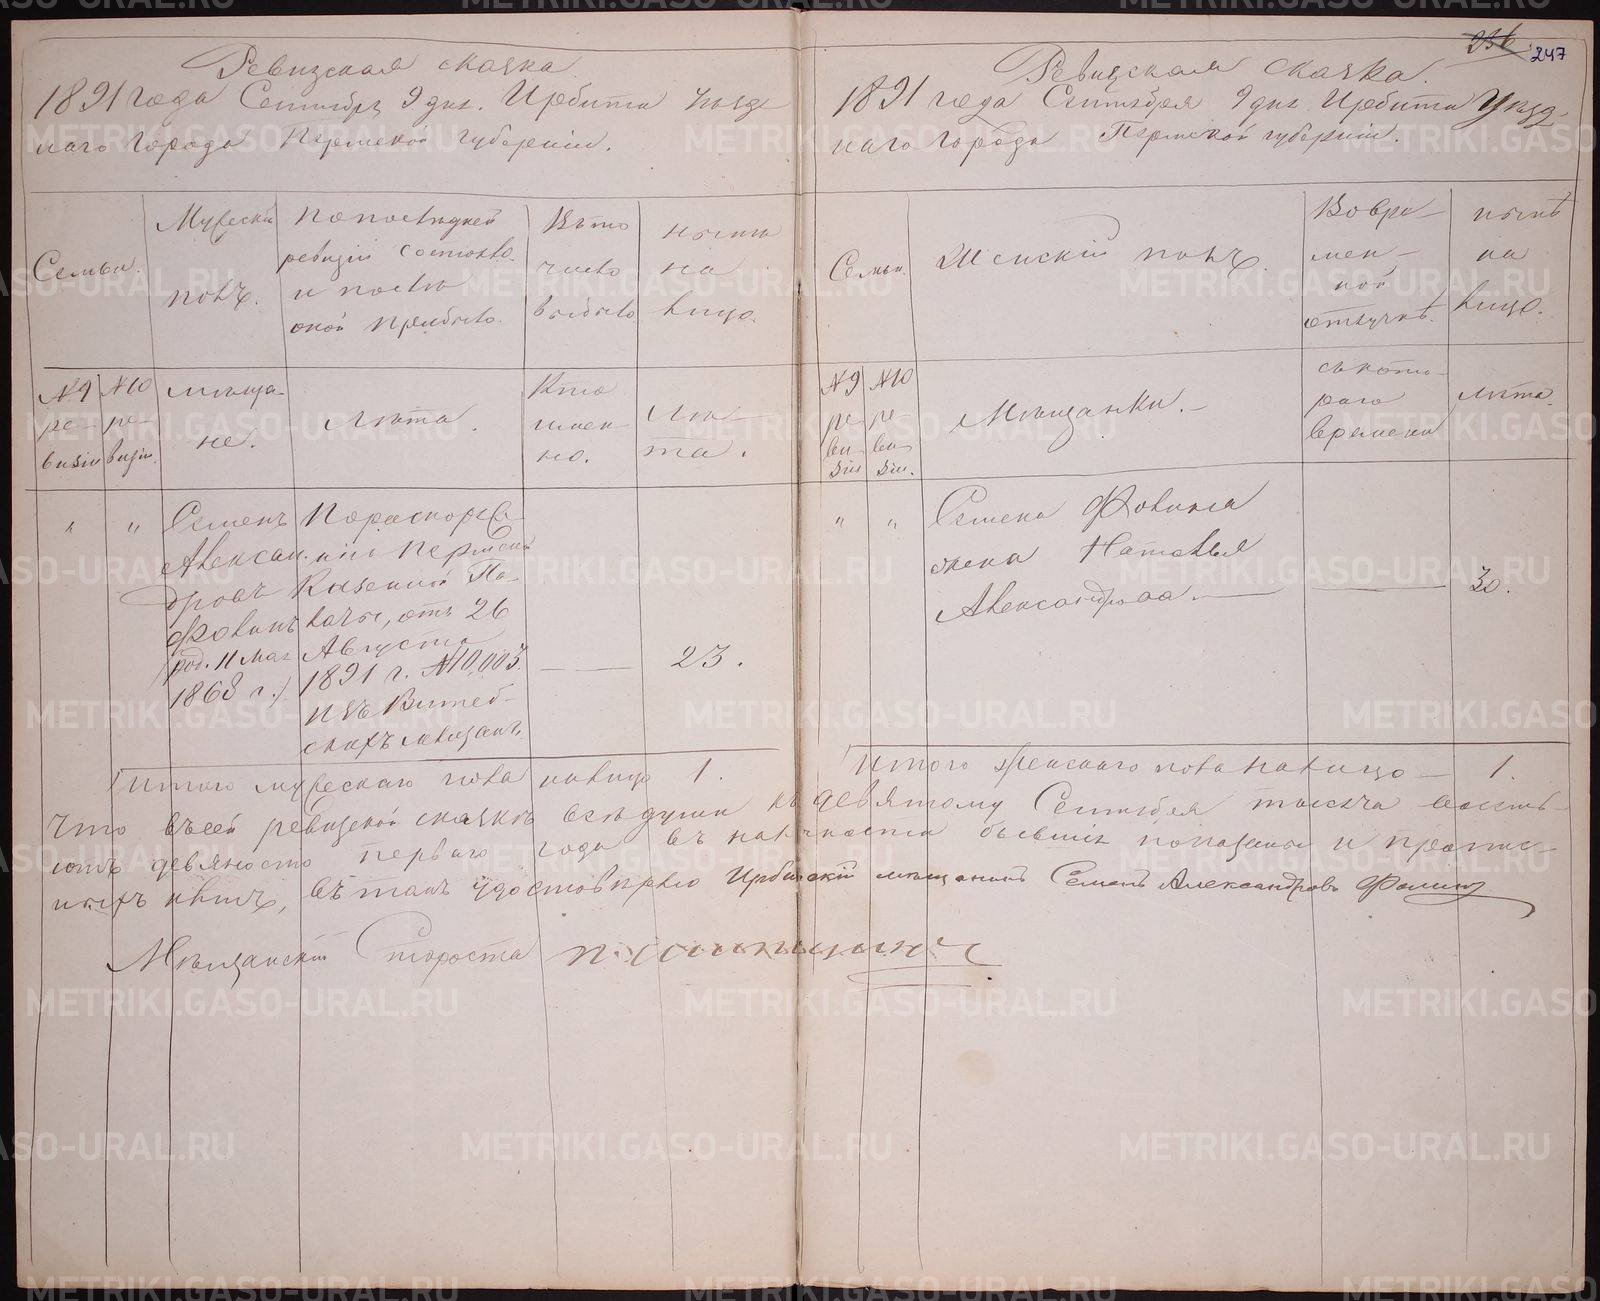 Ревизская сказка
1891 года Сентября 9 дня. Ирбита Уезд
наго города Пермской губернiи.
Семьи.
Мужескiй
полъ.
По последней
ревизiи состояло
и после
оной прибыло.
Въ то
число
выбыло
ныне
на
лицо.
№ 9
ре-
визiи
№ 10
ре-
визiи.
Меща-
не.
Лета.
Кто
имен
но.
Ле-
та.
" " Семенъ
Алексан
дровъ
Фолинъ
(род. 11 мая
1868 г.)
По распоряже
нiю Пермской
Казенной Па-
латы, отъ 26
Августа
1891 г. № 10,003
изъ Витеб-
скихъ мещанъ.
23.
Итого мужескаго пола на лицо 1.
236 247
Ревизская сказка.
1891 года Сентября 9 дня Ирбита Уезд-
наго города Пермской губернiи.
Семьи.
Женскiй полъ.
Во вре-
мен-
ной
отлучкѣ.
нынѣ
на
лицо.
№ 9
ре-
ви-
зiи
№ 10
ре-
ви-
зiи.
Мещанки.
съ кото-
раго
времени
лета.
" " Семена Фолина
жена Наталья
Александрова. 30.
Итого женскаго пола на лицо 1.
Что въ сей ревизской сказкѣ все души къ девятому Сентября тысяча восемь-
сотъ девяносто перваго года въ наличности бывшiя показаны и пропис-
ныхъ нетъ, въ томъ удостоверяю Ирбитскiй мещанинъ Семенъ Александровъ Фолинъ
Мещанскiй Староста П.
METRIKI.GASO-URAL.RU